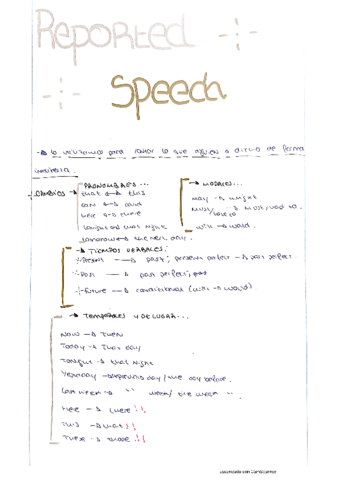 Reported
Speech
→ lo utilizamos para contar lo que alguien a dicho de forma
indirecta.
→ CAMBIOS → PRONOMBRES...
that ↔ this
can ↔ could
here ↔ there
tonight → that night
tomorrow → the next day.
→ MODALES...
may → might
must/have to → must/had to.
will → would.
→ TIEMPOS VERBALES:
Present → past; present perfect → past perfect.
Past → past perfect; past
Future → conditional (will → would)
→ TEMPORALES Y DE LUGAR...
NOW → THEN
TODAY → THAT day
TONIGHT → that night
YESTERDAY → previous day / the day before.
Last week → " week / the week "
HERE → there !!
THIS → that !!
THESE → those !!